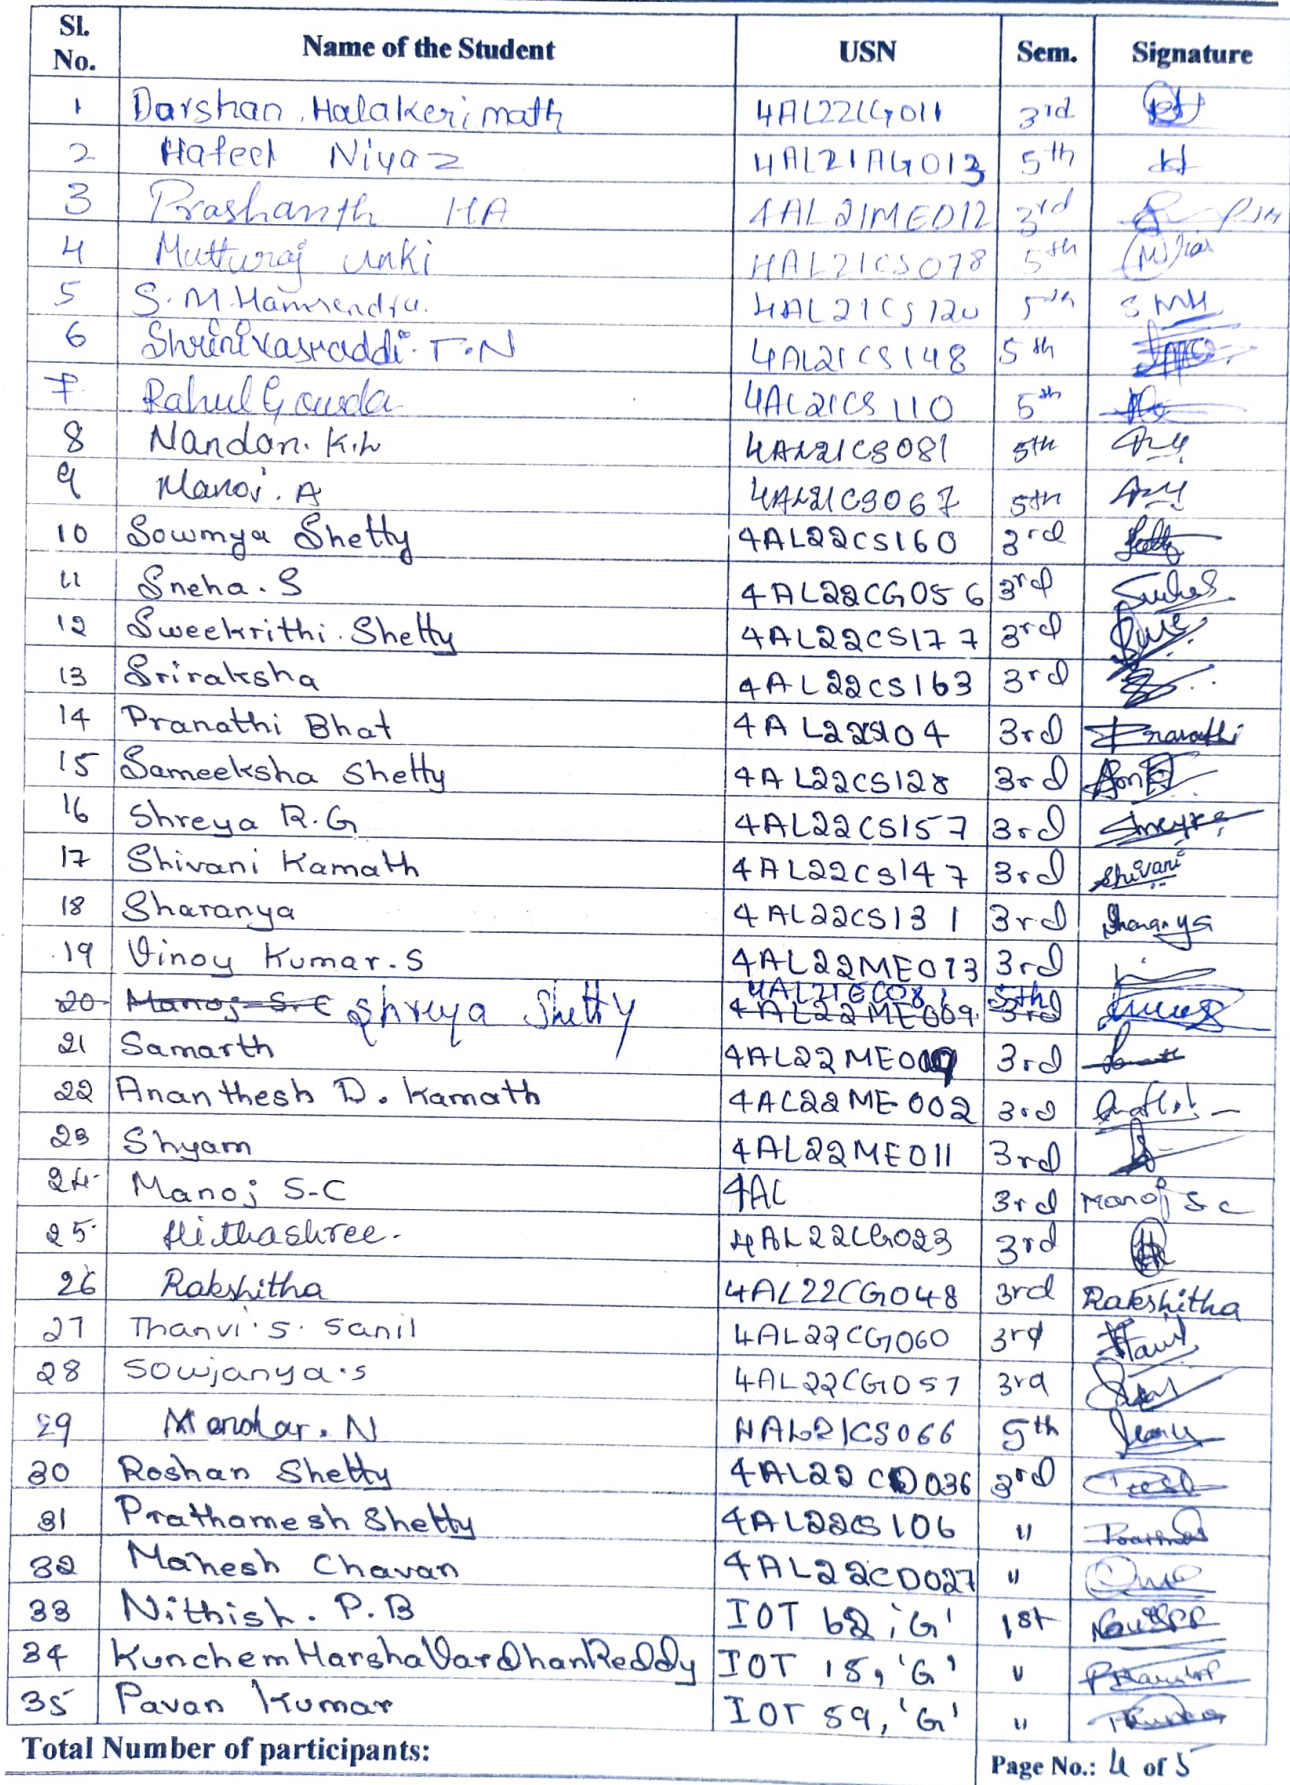 Sl. No. Name of the Student USN Sem. Signature
1 Darshan. Halakerimath 4AL22CG011 3rd
2 Hafeel Niyaz 4AL21AG013 5th
3 Prashanth HA 4AL21ME012 3rd
4 Mutturaj Unki 4AL21CS078 5th
5 S.M. 4AL21CS120 5th SMH
6 Shrinivasraddi.T.N 4AL21CS148 5th
7 Rahul Gowda 4AL21CS110 5th
8 Nandan. K.L 4AL21CS081 5th
9 Manoj. A 4AL21CS067 5th
10 Sowmya Shetty 4AL22CS160 3rd
11 Sneha. S 4AL22CG056 3rd
12 Sweekrithi. Shetty 4AL22CS177 3rd
13 Sriraksha 4AL22CS163 3rd
14 Pranathi Bhat 3rd Pranathi
15 Sameeksha Shetty 4AL22CS128 3rd
16 Shreya R.G 4AL22CS157 3rd Shreya
17 Shivani Kamath 4AL22CS147 3rd Shivani
18 Sharanya 4AL22CS131 3rd Sharanya
19 Vinoy Kumar.S 4AL22ME013 3rd
20 Manoj S.C Shreya Shetty 4AL21EC081 4AL22ME009 5th 3rd
21 Samarth 3rd
22 Ananthesh D. Kamath 4AL22ME002 3rd
23 Shyam 4AL22ME011 3rd
24. Manoj S-C 4AL 3rd Manoj S C
25. Hithashree. 4AL22CG023 3rd
26 Rakshitha 4AL22CG048 3rd Rakshitha
27 Thanvi.S. Sanil 4AL22CG060 3rd
28 Sowjanya.S 4AL22CG057 3rd
29 Manohar. N 4AL21CS066 5th
30 Roshan Shetty 4AL22CD036 3rd
31 Prathamesh Shetty 4AL22CS106 "
32 Mahesh Chavan 4AL22CD027 "
33 Nithish. P.B IOT 62, 'G' 1st
34 KunchemHarshaVardhanReddy IOT 18, 'G' "
35 Pavan Kumar IOT 59, 'G' "
Total Number of participants:
Page No.: 4 of 5